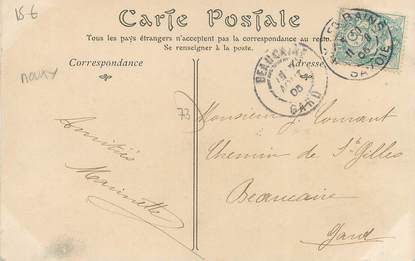 15 €
Carte Postale
Tous les pays étrangers n'acceptent pas la correspondance au recto.
Se renseigner à la poste.
Correspondance
Adresse
BAINS
SAVOIE
BEAUCAIRE
05
GARD
73
Amitiés
Marinette
Monsieur J. Courrant
Chemin de St Gilles
Beaucaire
Gard